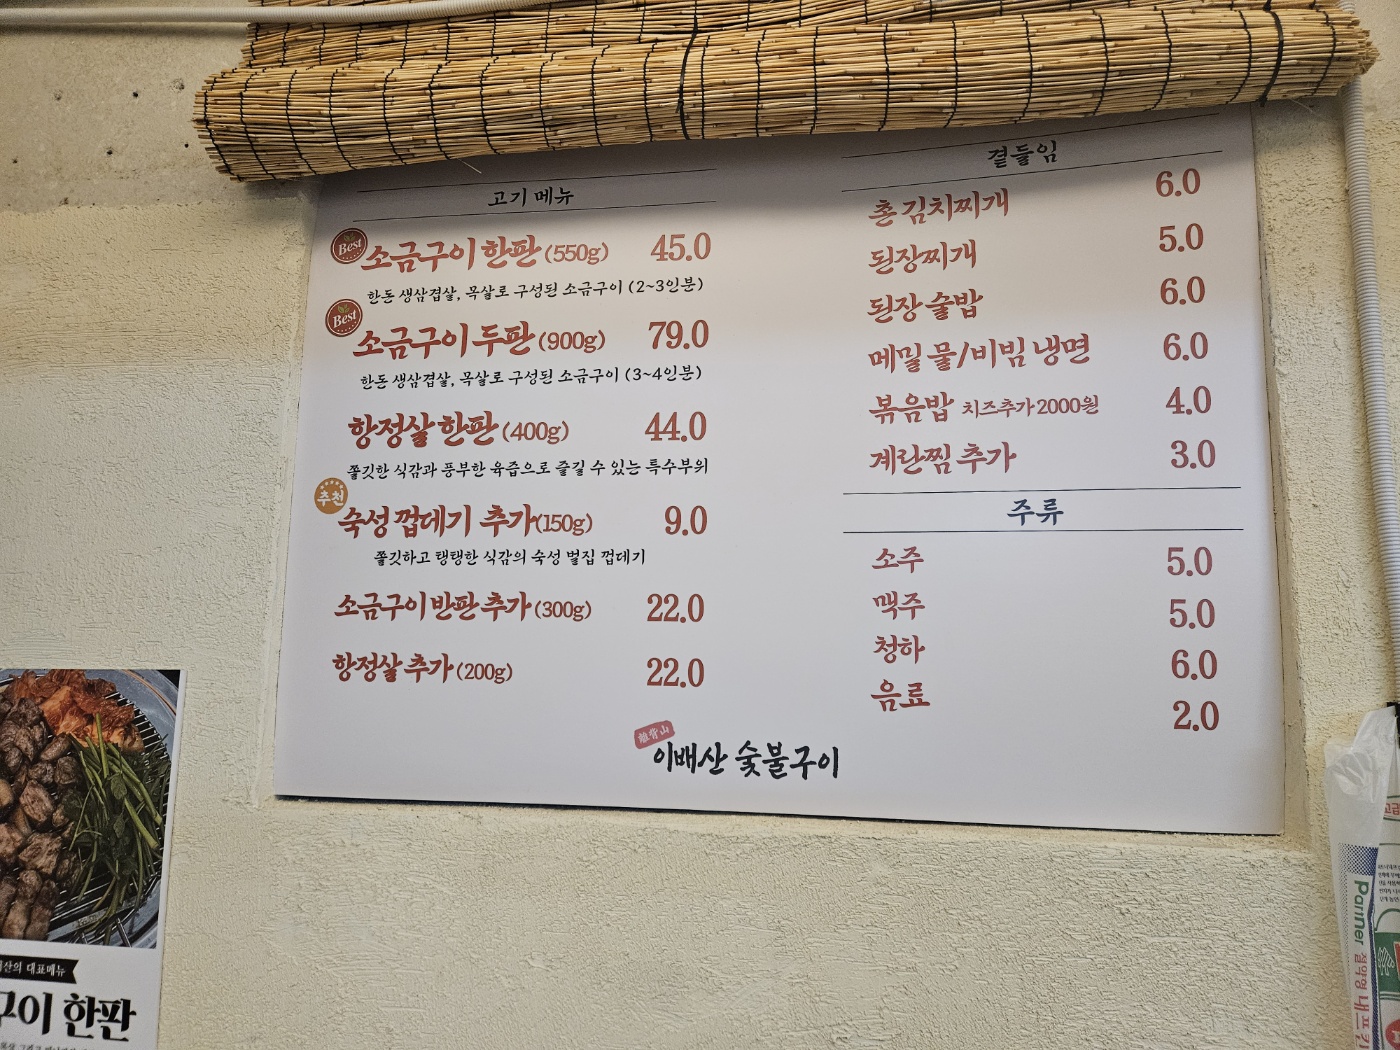 고기 메뉴
Best
소금구이 한판 (550g) 45.0
한돈 생삼겹살, 목살로 구성된 소금구이 (2~3인분)
Best
소금구이 두판 (900g) 79.0
한돈 생삼겹살, 목살로 구성된 소금구이 (3~4인분)
항정살 한판 (400g) 44.0
쫄깃한 식감과 풍부한 육즙으로 즐길 수 있는 특수부위
추천
숙성 껍데기 추가(150g) 9.0
쫄깃하고 탱탱한 식감의 숙성 벌집 껍데기
소금구이 반판 추가 (300g) 22.0
항정살 추가 (200g) 22.0
곁들임
촌 김치찌개 6.0
된장찌개 5.0
된장 술밥 6.0
메밀 물/비빔 냉면 6.0
볶음밥 치즈추가 2000원 4.0
계란찜 추가 3.0
주류
소주 5.0
맥주 5.0
청하 6.0
음료 2.0
이배산 숯불구이
산의 대표메뉴
구이 한판
Panner